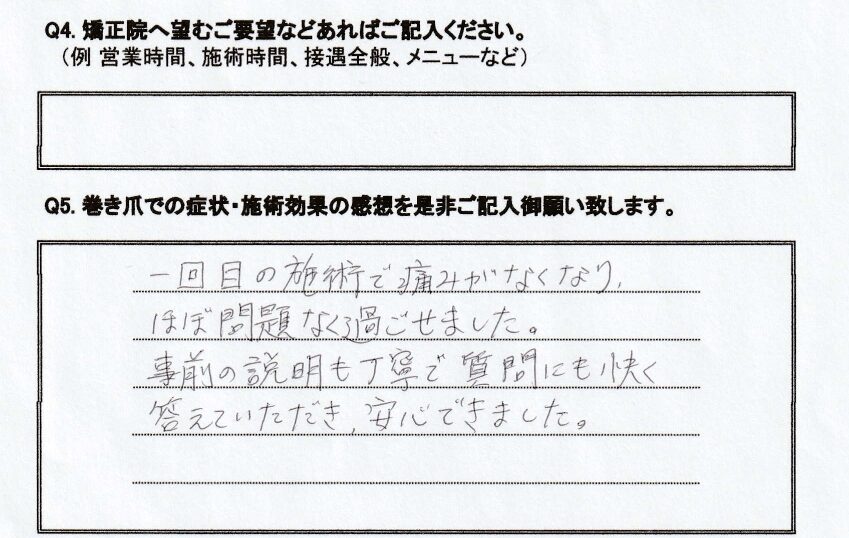 Q4. 矯正院へ望むご要望などあればご記入ください。
（例 営業時間、施術時間、接遇全般、メニューなど）
Q5. 巻き爪での症状・施術効果の感想を是非ご記入御願い致します。
一回目の施術で痛みがなくなり、
ほぼ問題なく過ごせました。
事前の説明も丁寧で質問にも快く
答えていただき、安心できました。